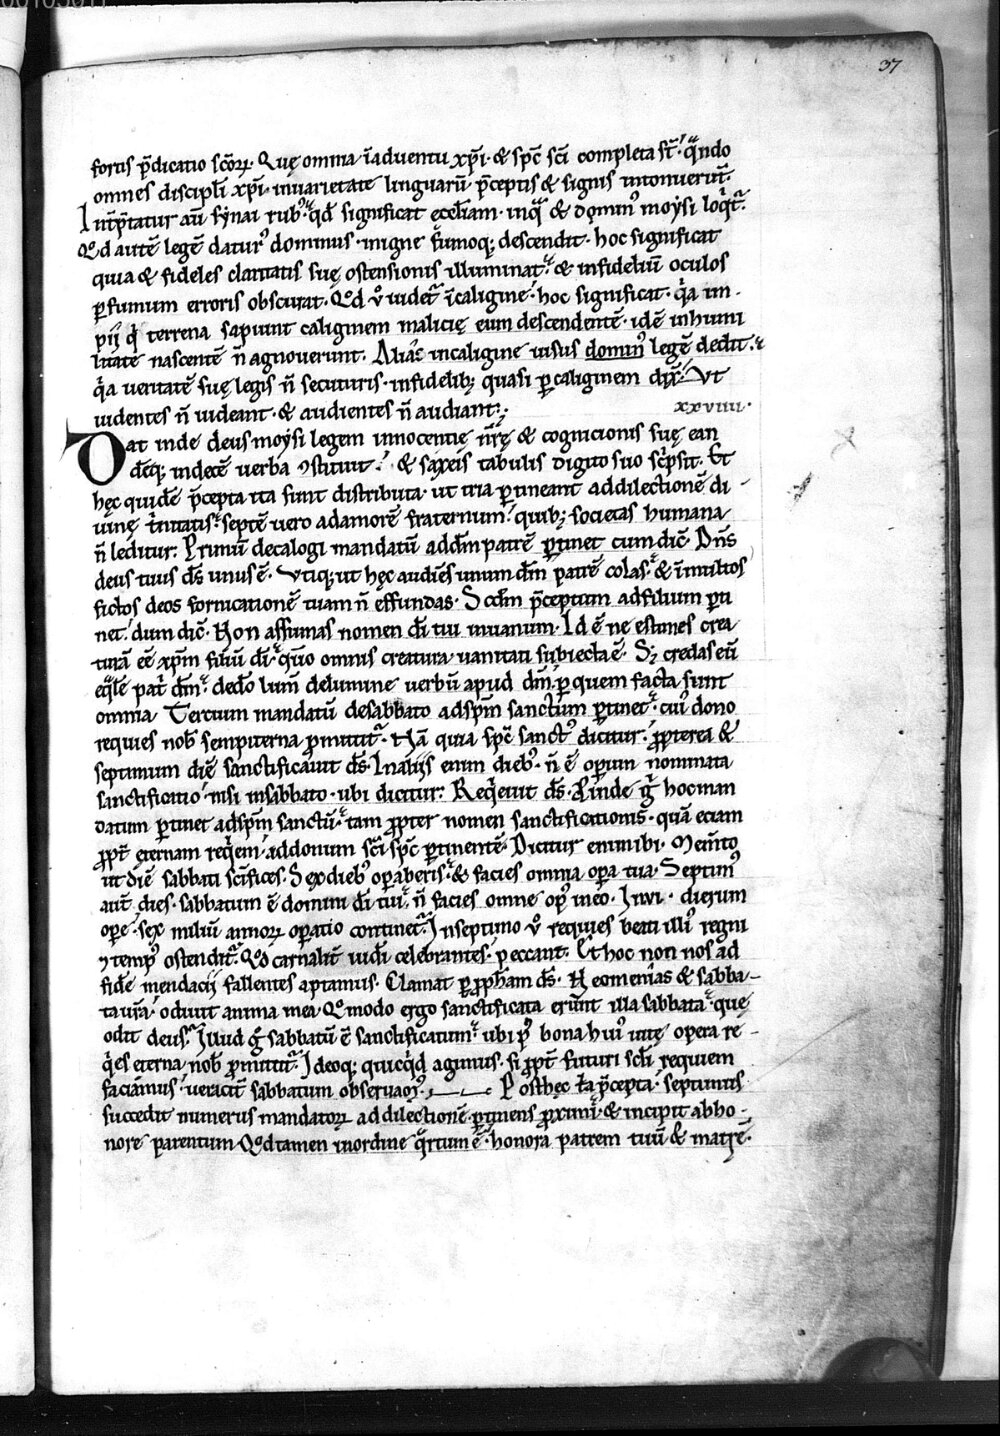 37
fortis p̄dicatio sc̄oꝝ. Quę omnia ī aduentu xp̄i. & sp̄c sc̄i completa st̄. qͣndo
omnes discipl̄i xp̄i. inuarietate linguarū p̄ceptis & signis intonuerūt.
Int̄p̄tatur aū synai rubꝰ. qd̄ significat ęcclīam. inqͣ & dominꝰ moysi loqͥt᷑.
Qd̄ autē legē daturꝰ dominus. inigne & fumoqꝫ descendit. hoc significat
quia & fideles claritatis suę ostensionis illuminat. & infideliū oculos
ꝑfumum erroris obscurat. Qd̄ v̊ uidet᷑ īcaligine. hoc significat. qͥa im-
pij qͥ terrena sapiunt caliginem malicię eum descendentē. idē inhumi
litate nascentē n̄ agnouerunt. Aliaꝰ incaligine uisus dominꝰ legē dedit.
qͥa ueritatē suę legis n̄ secuturis. infidelibꝫ quasi ꝑcaliginem dix̄. Vt
uidentes n̄ uideant. & audientes n̄ audiant. xxviiii.
Dat inde deus moysi legem innocentię nr̄ę & cognicionis suę ean
dēqꝫ indecē uerba ꝯstituit. & saxeis tabulis digito suo scͥpsit. Et
hęc quidē p̄cepta ita sunt distributa. ut tria ꝑtineant addilectionē di-
uinę tͥnitatis. septē uero adamorē fraternum. quibꝫ societas humana
n̄ leditur. Primū decalogi mandatū addm̄ patrē ꝑtinet cum dic̄. Dn̄s
deus tuus ds̄ unus ē. Vtiqꝫ ut hęc audiēs unum dm̄ patrē colas. & īmultos
fictos deos fornicationē tuam n̄ effundas. Scd̄m p̄ceptum adfilium ꝑti
net. dum dic̄. Non assumas nomen dī tui inuanum. Id ē ne estimes crea
turā eē xp̄m filiū dī. qm̄o omnis creatura uanitati subiecta ē. Sꝫ credas eū
eqͣlē patͥ dm̄. dedo lum̄ delumine uerbū apud dm̄. ꝑ quem facta sunt
omnia Tercium mandatū desabbato adsp̄m sanctum ꝑtinet. cuiꝰ dono
requies nob̄ sempiterna ꝓmittit᷑. Nā quia sp̄c sanctꝰ dicitur. ꝓpterea &
septimum diē sanctificauit ds̄. Inalijs enim diebꝰ. n̄ ē operum nominata
sanctificatio nisi insabbato. ubi dicitur. Reqͥeuit ds̄. Proinde gͦ hoc man
datum ꝑtinet adsp̄m sanctū. tam ꝓpter nomen sanctificationis. quā eciam
ꝓpt̄ ęternam reqͥem. addonum sc̄i sp̄c ꝑtinentē. Dicitur enim ibi. Mem̄to
ut diē sabbati sc̄ifices. Sex diebꝰ oꝑaberis. & facies omnia oꝑa tua. Septimꝰ
aūt dies. sabbatum ē domini dī tui. n̄ facies omne opꝰ ineo. In vi. dierum
oꝑe. sex miliū annoꝝ oꝑatio continet᷑. Inseptimo v̊ requies beati illiꝰ regni
ꝯtempꝰ ostendit᷑. Qd̄ carnalit̄ iudī celebrantes. peccant. Et hoc non nos ad
fidē mendacij fallentes aptamus. Clamat ꝑ ꝓph̄am ds̄. Neomenias & sabba-
ta ur̄a. odiuit anima mea. Qͦmodo ergo sanctificata erunt illa sabbata. quę
odit deus. Illud gͦ sabbatū ē sanctificatum. ubi pꝰ bona huiꝰ uitę opera re-
qͥes eterna nob̄ ꝓmittit᷑. Ideoqꝫ quicqͥd agimus. si ꝓpt̄ futuri scl̄i requiem
faciamus. ueracit̄ sabbatum obseruamꝰ. Posthęc tͥa p̄cepta. septimus
succedit numerus mandatoꝝ addilectionē ꝑtinens ꝓximi. & incipit abho-
nore parentum Qd̄ tamen inordine qͣrtum ē. honora patrem tuū & matrē.